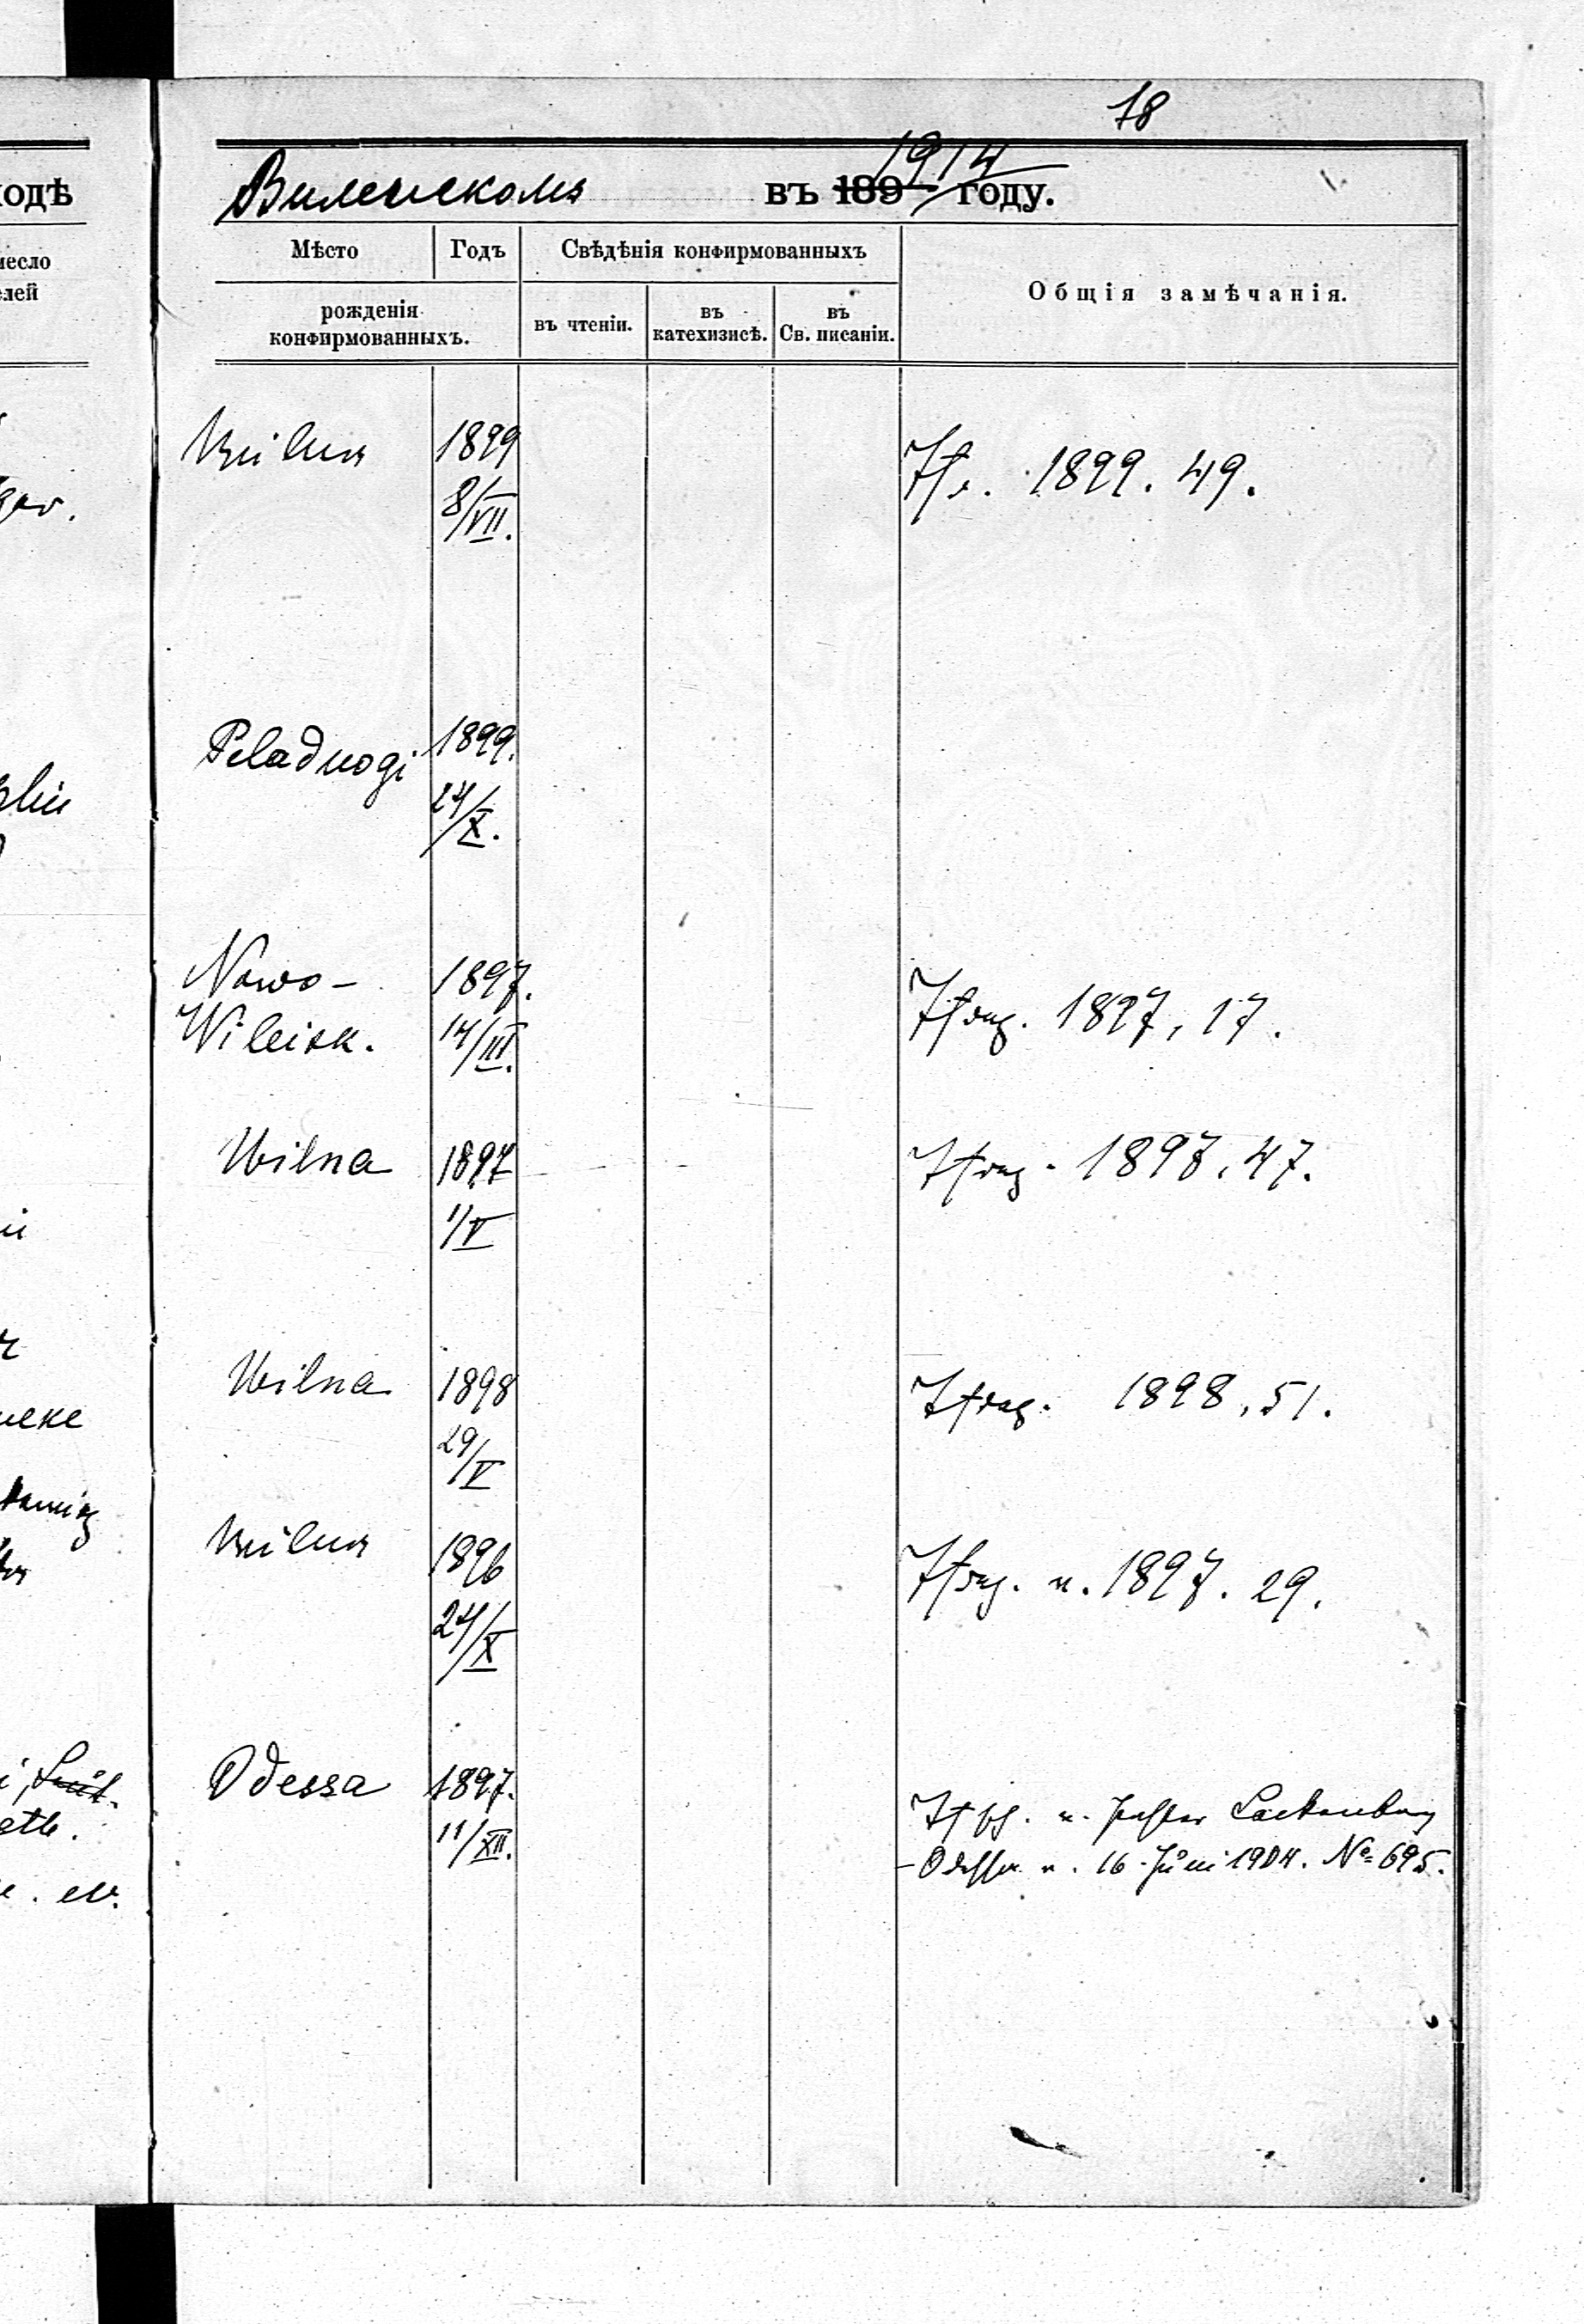 78
одѣ Виленскомъ въ 189 1914 году.
Мѣсто Годъ Свѣдѣнія конфирмованныхъ
Общія замѣчанія.
рожденія
конфирмованныхъ.
въ чтеніи. въ катехизисѣ. въ Св. писаніи.
Wilna 1899 1899. 49.
8/VII.
Peladnogi 1899.
24/X.
Nowo- 1897. 1897, 17.
Wileisk. 14/III.
Wilna 1897 1897. 47.
1/V
Wilna 1898 1898, 51.
29/V
Wilna 1896 1897. 29.
24/X
Odessa 1897. Pastor
11/XII. Odessa 16. Juni 1904. № 695.